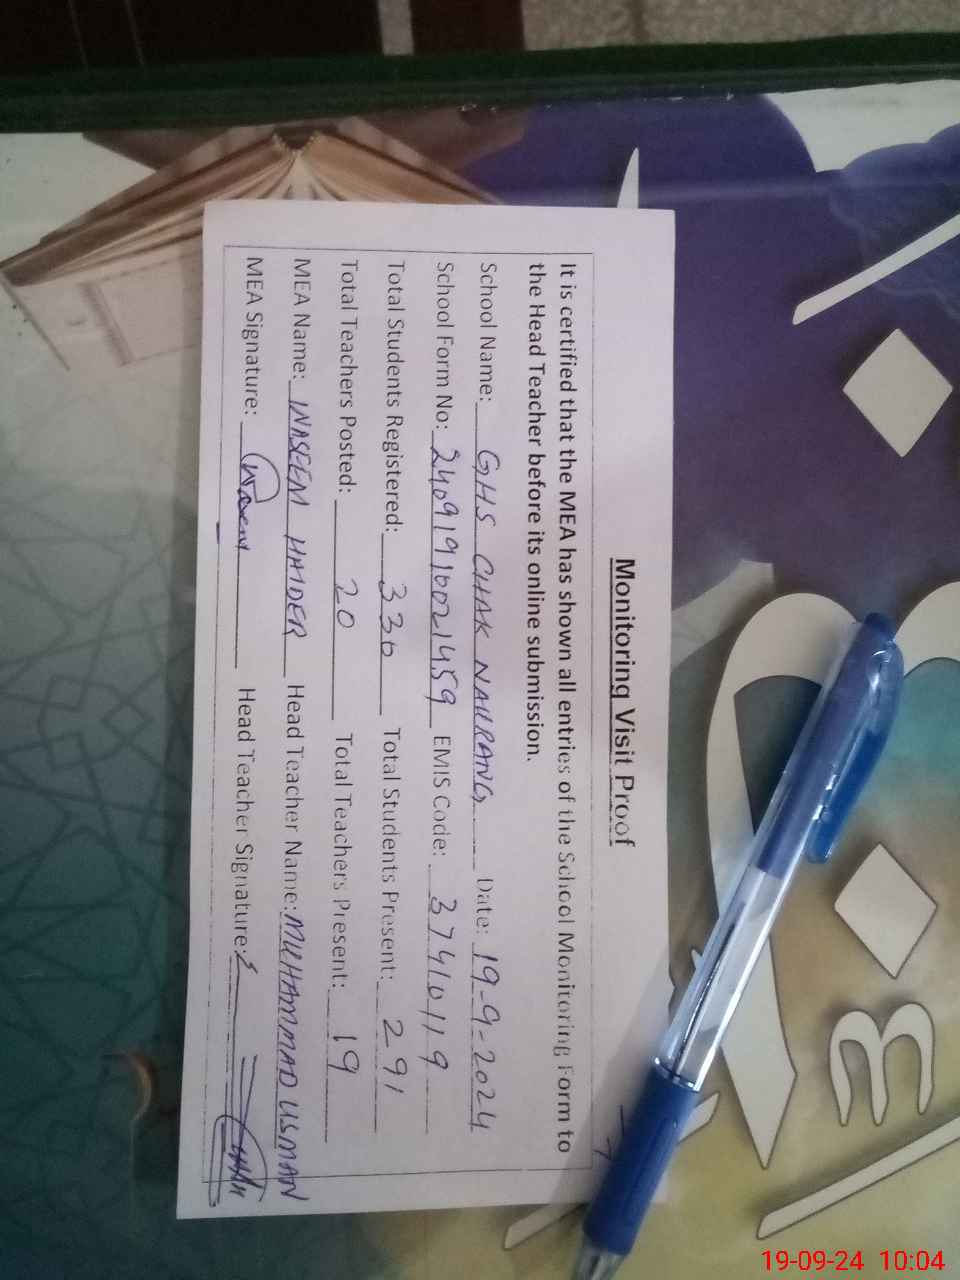 Monitoring Visit Proof
It is certified that the MEA has shown all entries of the School Monitoring Form to
the Head Teacher before its online submission.
School Name: GHS CHAK NAURANG Date: 19-9-2024
School Form No: 24091910021459 EMIS Code: 37410119
Total Students Registered: 336 Total Students Present: 291
Total Teachers Posted: 20 Total Teachers Present: 19
MEA Name: WASEEM HAIDER Head Teacher Name: MUHAMMAD USMAN
MEA Signature: Waseem Head Teacher Signature:
19-09-24 10:04